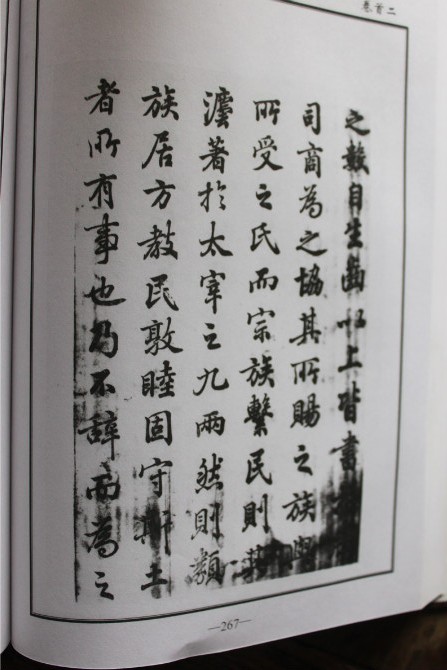 卷首二
之數自生齒以上皆書
司商為之協其所賜之族與
所受之氏而宗族繫民則其
瀍著於太宰之九兩然則類
族居方教民敦睦固守斯土
者所有事也乃不辭而為之
—267—